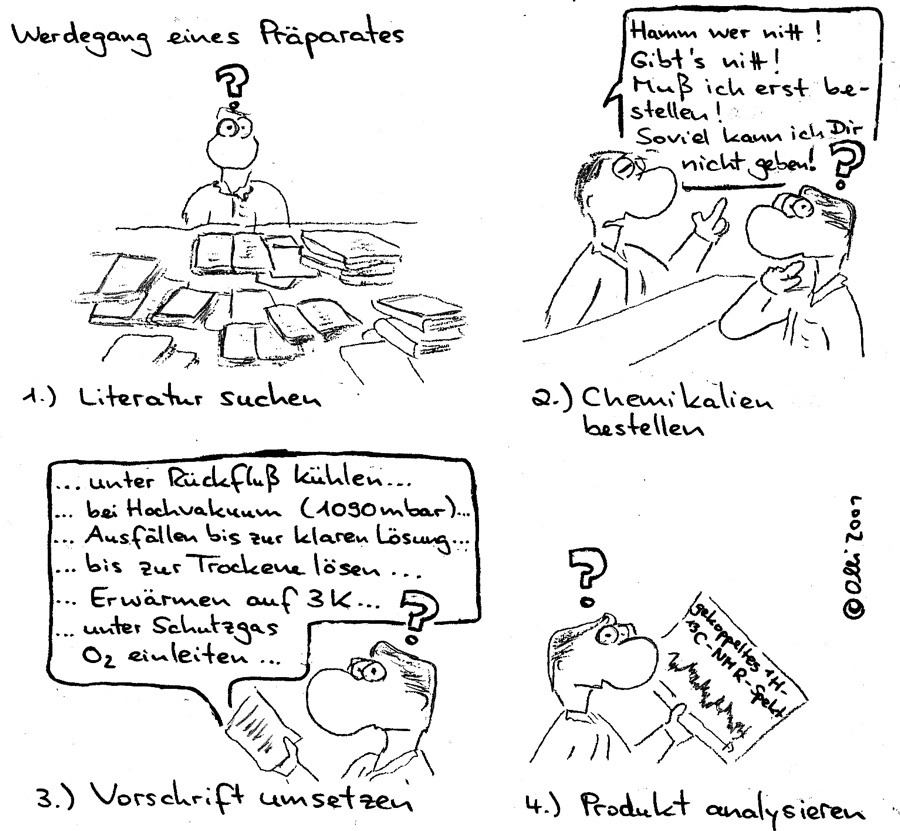 Werdegang eines Präparates
?
1.) Literatur suchen
Hamm wer nitt!
Gibt's nitt!
Muß ich erst be-
stellen!
Soviel kann ich Dir
nicht geben!
?
2.) Chemikalien
bestellen
... unter Rückfluß kühlen...
... bei Hochvakuum (1090mbar)...
... Ausfällen bis zur klaren Lösung...
... bis zur Trockene lösen ...
... Erwärmen auf 3K...
... unter Schutzgas
O₂ einleiten ...
?
3.) Vorschrift umsetzen
?
gekoppeltes 1H-
13C-NMR-Spekt
4.) Produkt analysieren
© Olli 2001